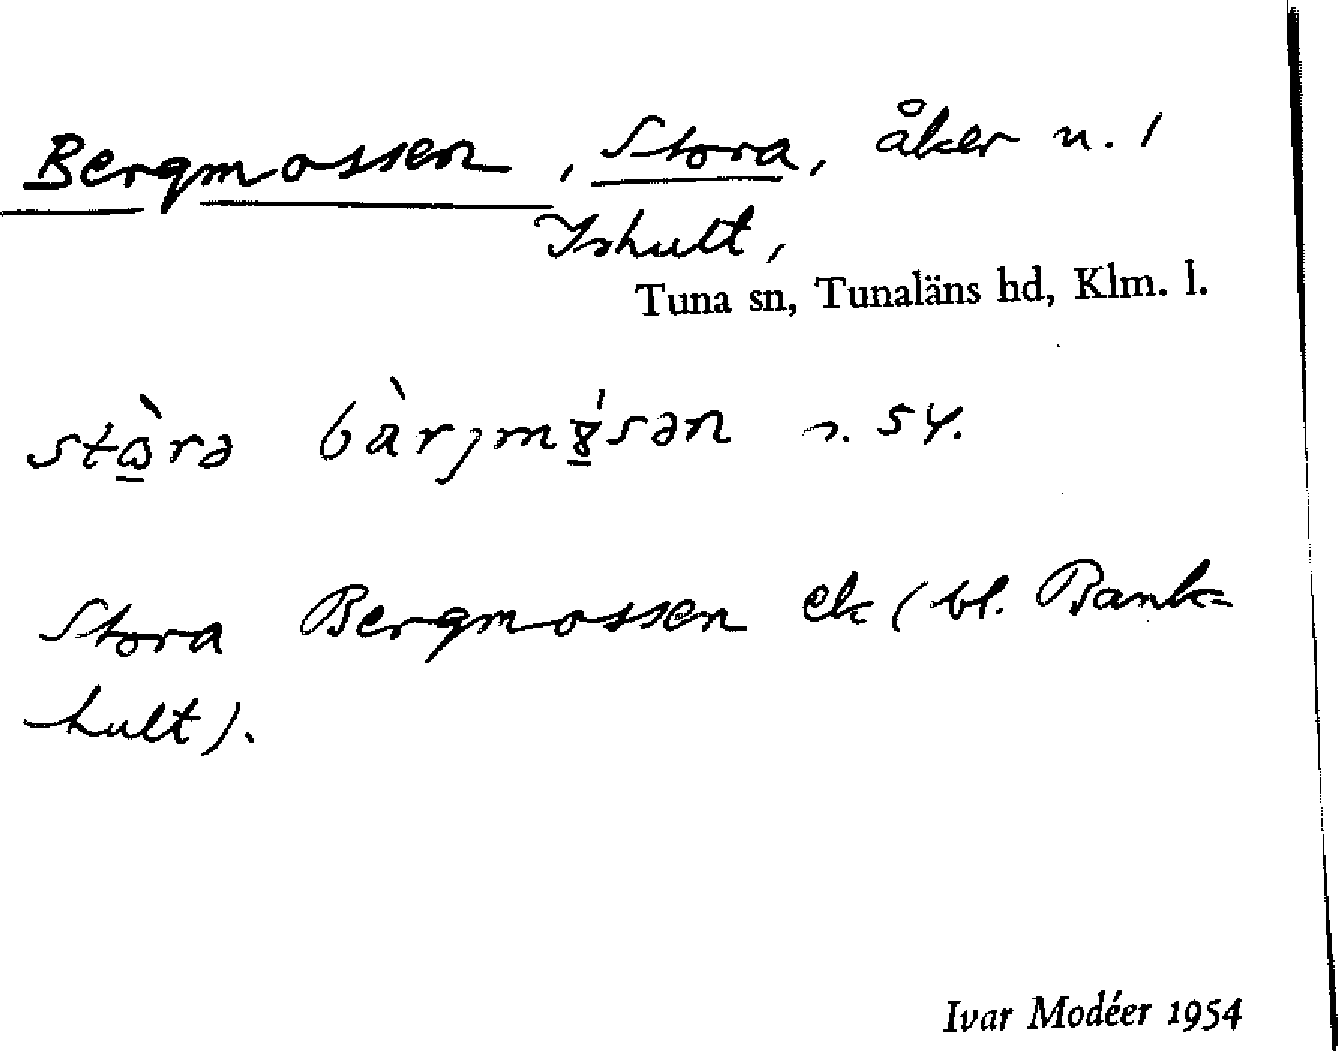 Bergmossen, Stora, åker n. 1
Ishult,
Tuna sn, Tunaläns hd, Klm. l.
54.
Stora Bergmossen ek (bl. Bank-
hult).
Ivar Modéer 1954